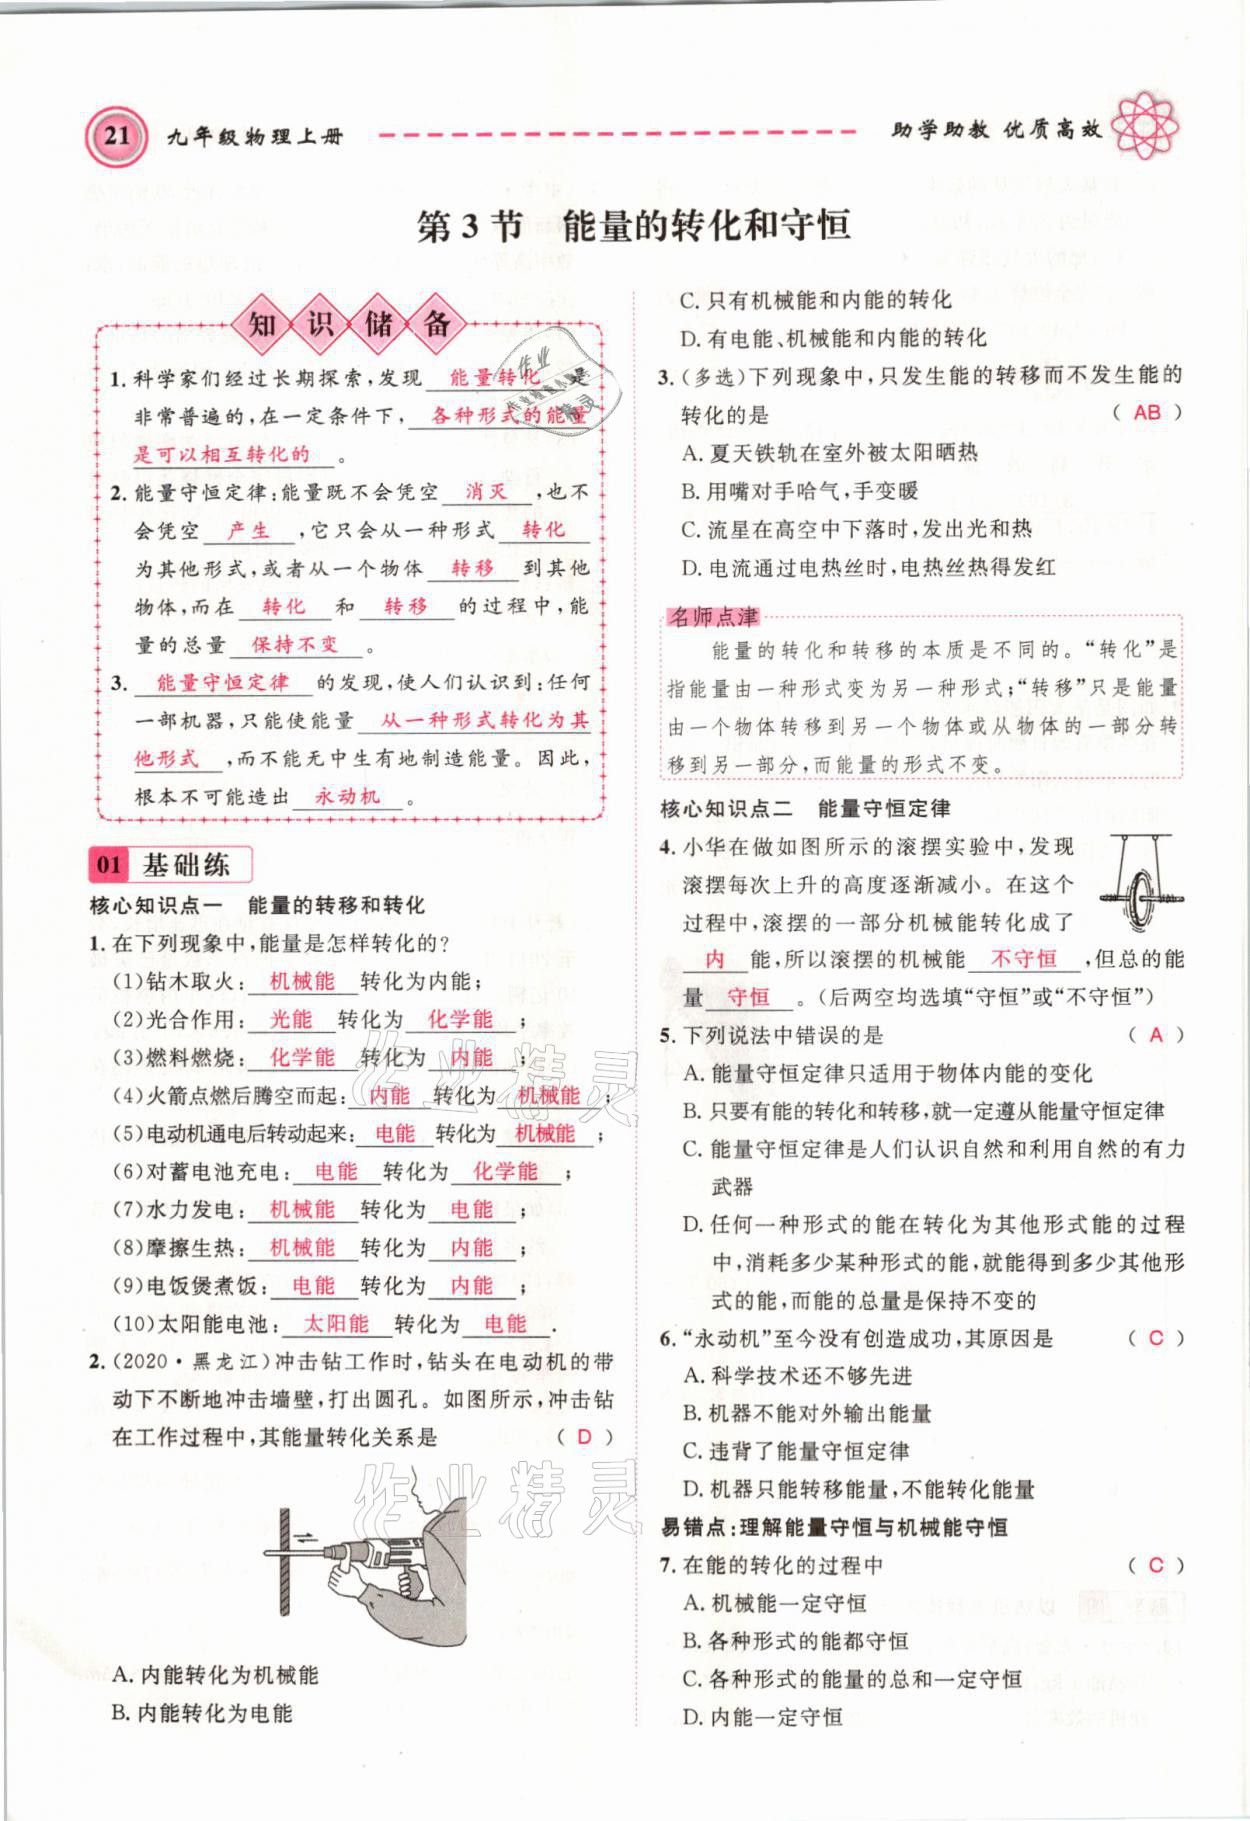 21 九年级物理上册 助学助教 优质高效
第3节 能量的转化和守恒
知识储备
1. 科学家们经过长期探索,发现 能量转化 是
非常普遍的,在一定条件下, 各种形式的能量
是可以相互转化的 。
2. 能量守恒定律:能量既不会凭空 消灭 ,也不
会凭空 产生 ,它只会从一种形式 转化
为其他形式,或者从一个物体 转移 到其他
物体,而在 转化 和 转移 的过程中,能
量的总量 保持不变 。
3. 能量守恒定律 的发现,使人们认识到:任何
一部机器,只能使能量 从一种形式转化为其
他形式 ,而不能无中生有地制造能量。因此,
根本不可能造出 永动机 。
01 基础练
核心知识点一 能量的转移和转化
1. 在下列现象中,能量是怎样转化的?
(1)钻木取火: 机械能 转化为内能;
(2)光合作用: 光能 转化为 化学能 ;
(3)燃料燃烧: 化学能 转化为 内能 ;
(4)火箭点燃后腾空而起: 内能 转化为 机械能 ;
(5)电动机通电后转动起来: 电能 转化为 机械能 ;
(6)对蓄电池充电: 电能 转化为 化学能 ;
(7)水力发电: 机械能 转化为 电能 ;
(8)摩擦生热: 机械能 转化为 内能 ;
(9)电饭煲煮饭: 电能 转化为 内能 ;
(10)太阳能电池: 太阳能 转化为 电能 .
2. (2020·黑龙江)冲击钻工作时,钻头在电动机的带
动下不断地冲击墙壁,打出圆孔。如图所示,冲击钻
在工作过程中,其能量转化关系是 ( D )
A. 内能转化为机械能
B. 内能转化为电能
C. 只有机械能和内能的转化
D. 有电能、机械能和内能的转化
3. (多选)下列现象中,只发生能的转移而不发生能的
转化的是 ( AB )
A. 夏天铁轨在室外被太阳晒热
B. 用嘴对手哈气,手变暖
C. 流星在高空中下落时,发出光和热
D. 电流通过电热丝时,电热丝热得发红
名师点津
能量的转化和转移的本质是不同的。“转化”是
指能量由一种形式变为另一种形式;“转移”只是能量
由一个物体转移到另一个物体或从物体的一部分转
移到另一部分,而能量的形式不变。
核心知识点二 能量守恒定律
4. 小华在做如图所示的滚摆实验中,发现
滚摆每次上升的高度逐渐减小。在这个
过程中,滚摆的一部分机械能转化成了
内 能,所以滚摆的机械能 不守恒 ,但总的能
量 守恒 。(后两空均选填“守恒”或“不守恒”)
5. 下列说法中错误的是 ( A )
A. 能量守恒定律只适用于物体内能的变化
B. 只要有能的转化和转移,就一定遵从能量守恒定律
C. 能量守恒定律是人们认识自然和利用自然的有力
武器
D. 任何一种形式的能在转化为其他形式能的过程
中,消耗多少某种形式的能,就能得到多少其他形
式的能,而能的总量是保持不变的
6. “永动机”至今没有创造成功,其原因是 ( C )
A. 科学技术还不够先进
B. 机器不能对外输出能量
C. 违背了能量守恒定律
D. 机器只能转移能量,不能转化能量
易错点:理解能量守恒与机械能守恒
7. 在能的转化的过程中 ( C )
A. 机械能一定守恒
B. 各种形式的能都守恒
C. 各种形式的能量的总和一定守恒
D. 内能一定守恒
作业精灵
作业精灵